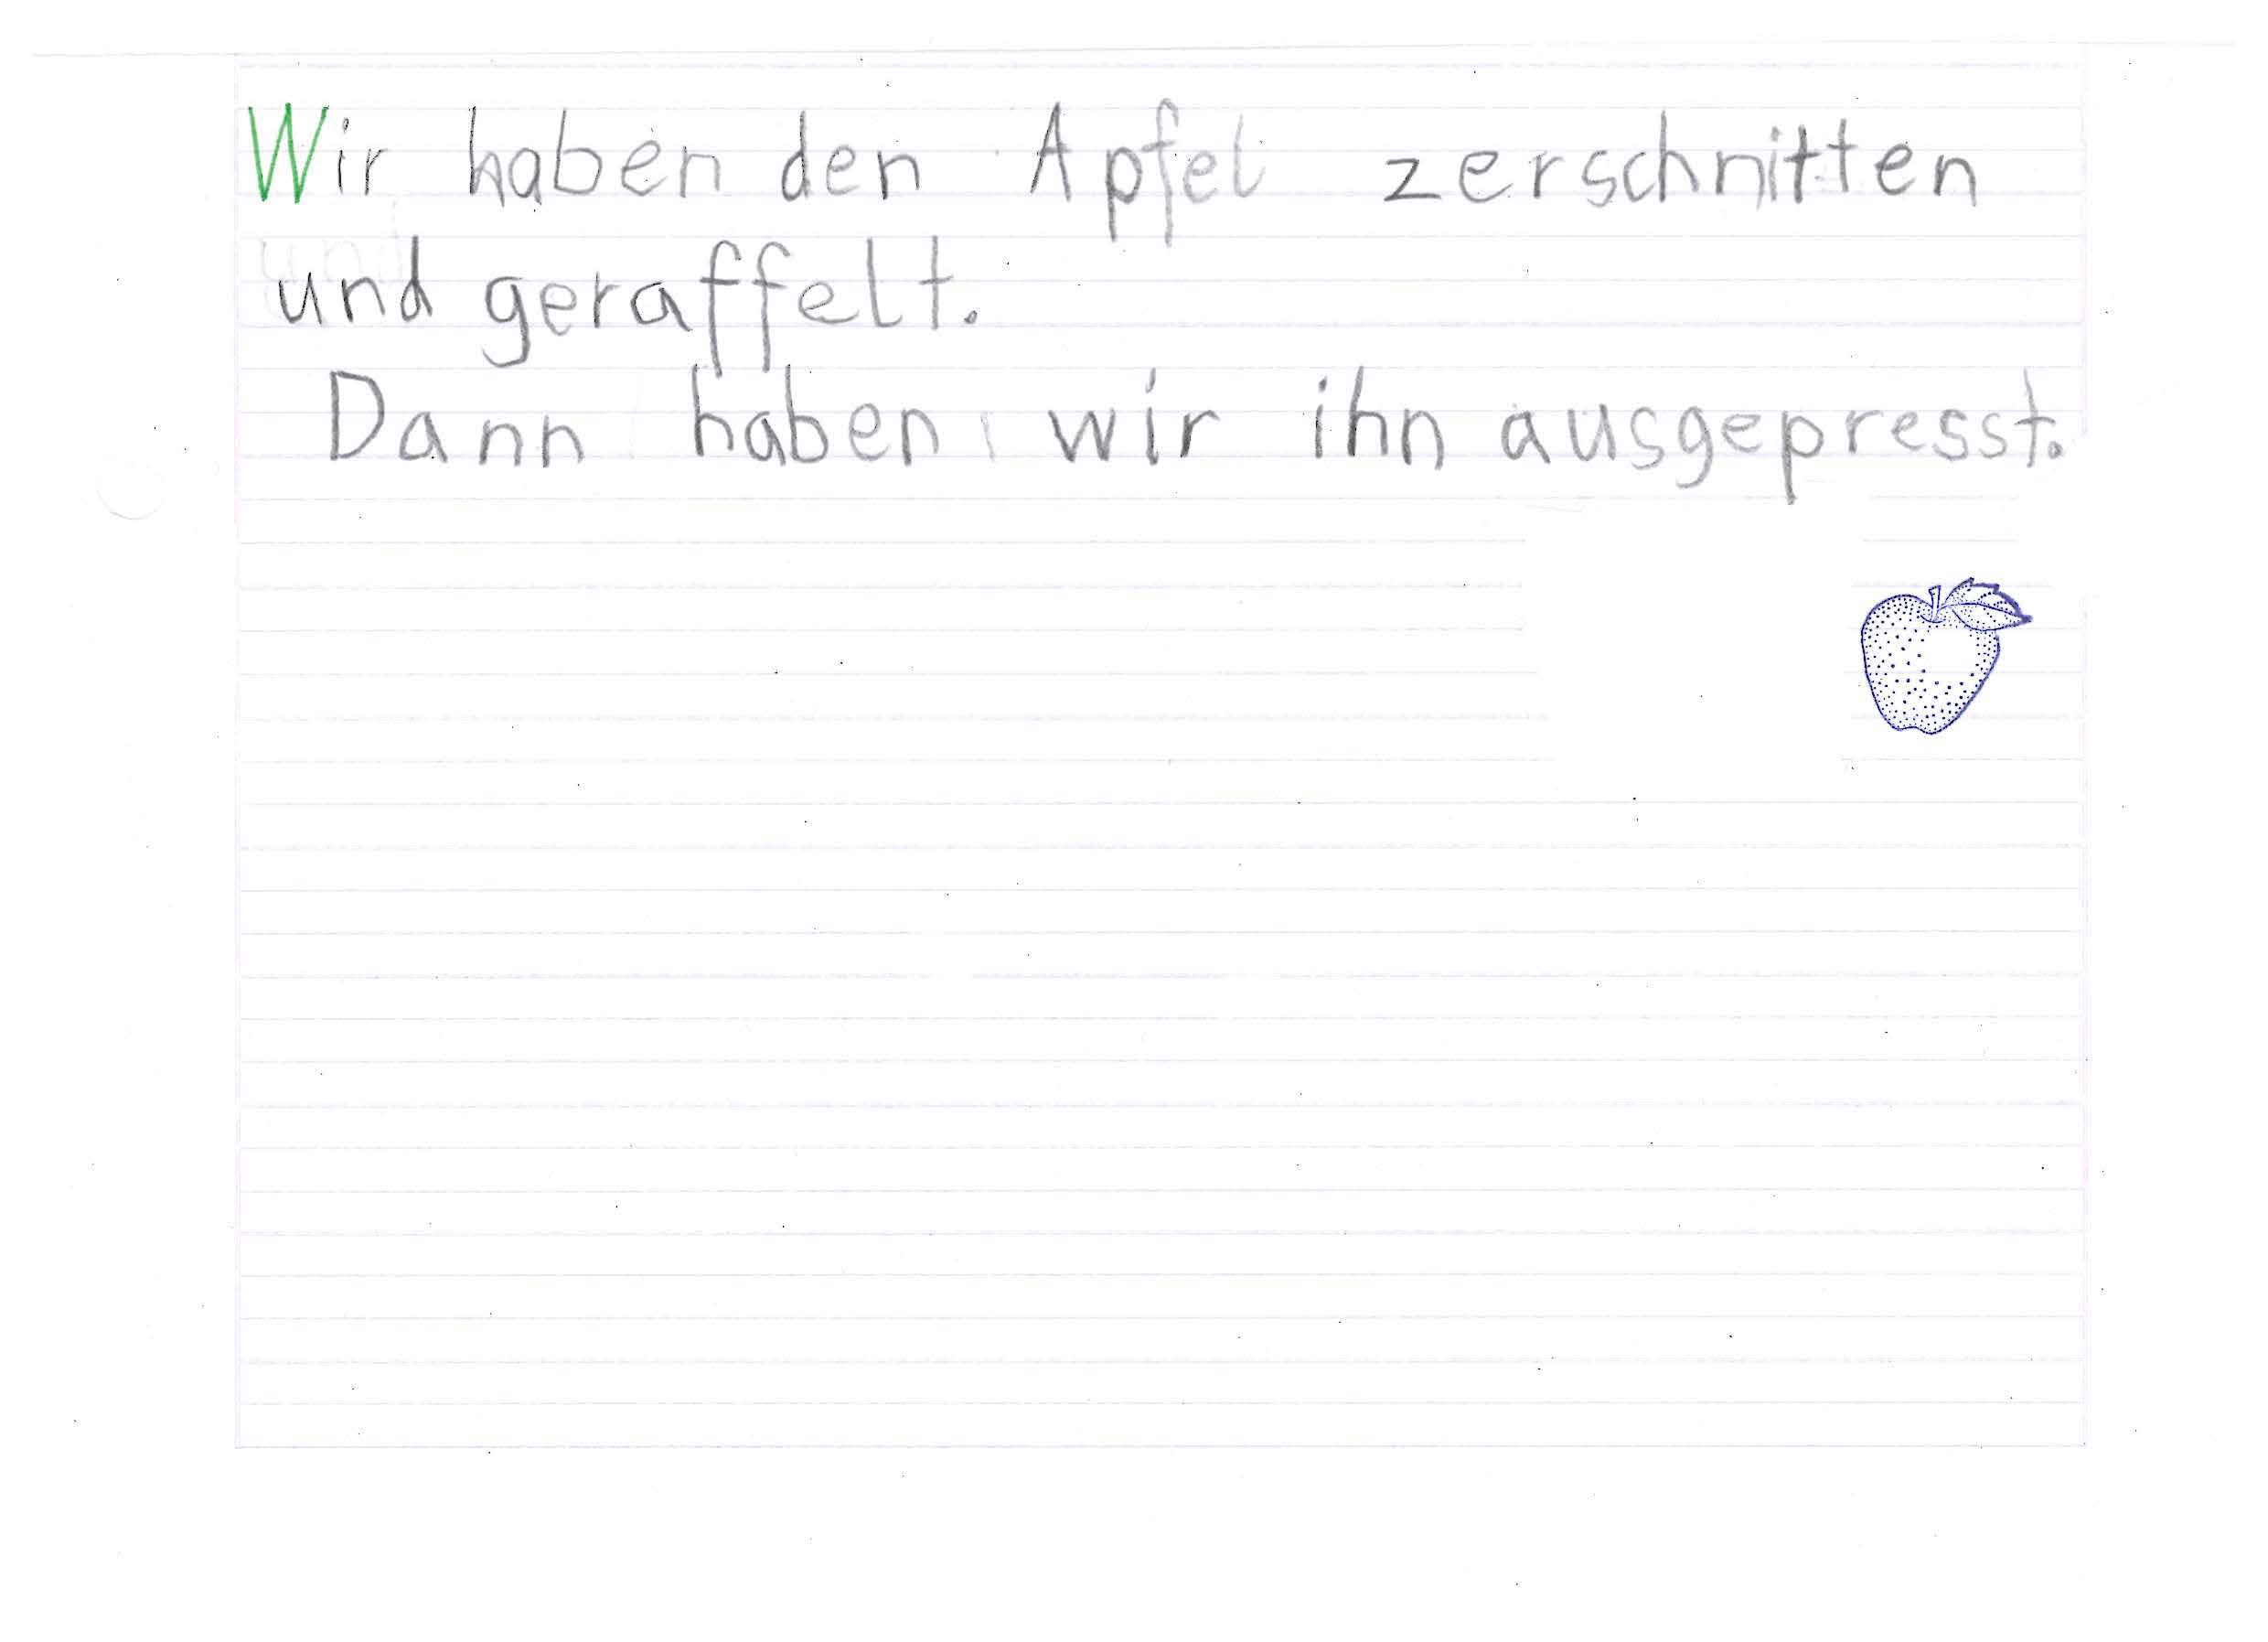 Wir haben den Apfel zerschnitten
und geraffelt.
Dann haben wir ihn ausgepresst.